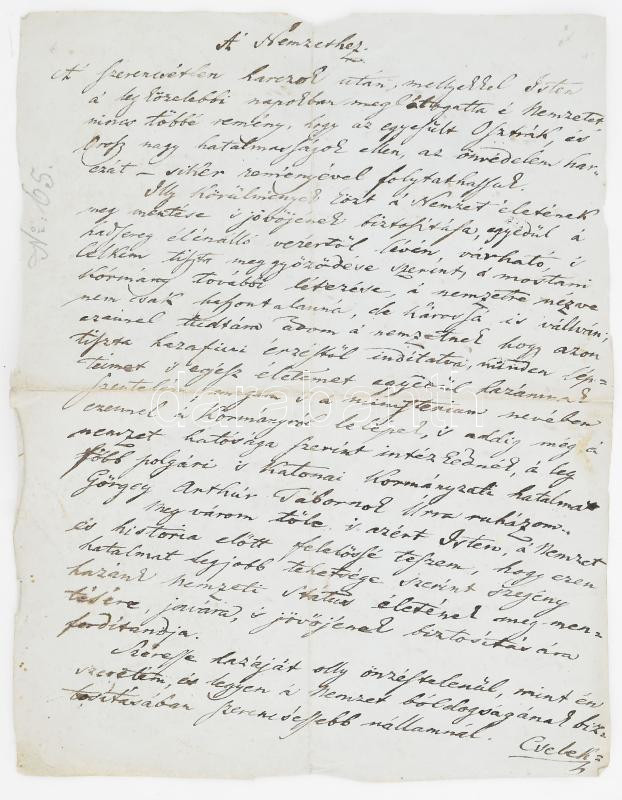 A' Nemzethez.
A' szerencsétlen harczok után, mellyekkel Isten
a legközelebbi napokban meglátogatta é Nemzetet
nincs többé remény, hogy az egyesült Osztrák és
Orosz nagy hatalmasságok ellen, az önvédelem har=
czát – siker reményével folytathassuk.
Illy körülmények közt a Nemzet életének
meg mentése is jövőjének biztosítása, egyedül á
hadsereg élénálló vezértől lévén, várható, is
lelkem tiszta meggyőződése szerint, a mostani
kormány további létezése, a nemzetre nezve
nem csak haszontalanná, de károssá is válván;
ezennel tudtára adom a nemzetnek hogy azon
tiszta hazafiúi érzéstől indítatva, minden lép=
teimet is egész életemet egyedül hazámnak
szentelém, magam is a ministérium nevében
ezennel a kormányról lelépek, is addig míg á
nemzet hatósága szerint intézkednék, a leg
főbb polgári is katonai kormányzati hatalmat
Görgey Arthúr Tábornok Urra ruházom..
Meg várom tőle is azért Isten, á Nemzet
és história előtt felelőssé teszem, hogy ezen
hatalmat legjobb tehetsége szerint szegény
hazánk nemzeti Státus életének meg-men=
tésére, javára, is jövőjének biztosítására
fordítandja.
Szeresse hazáját olly önzéstelenül, mint én
szeretém, és legyen a Nemzet bóldogságának biz=
tosításában szerencsésebb nállamnál.
No. 65.
darabanth